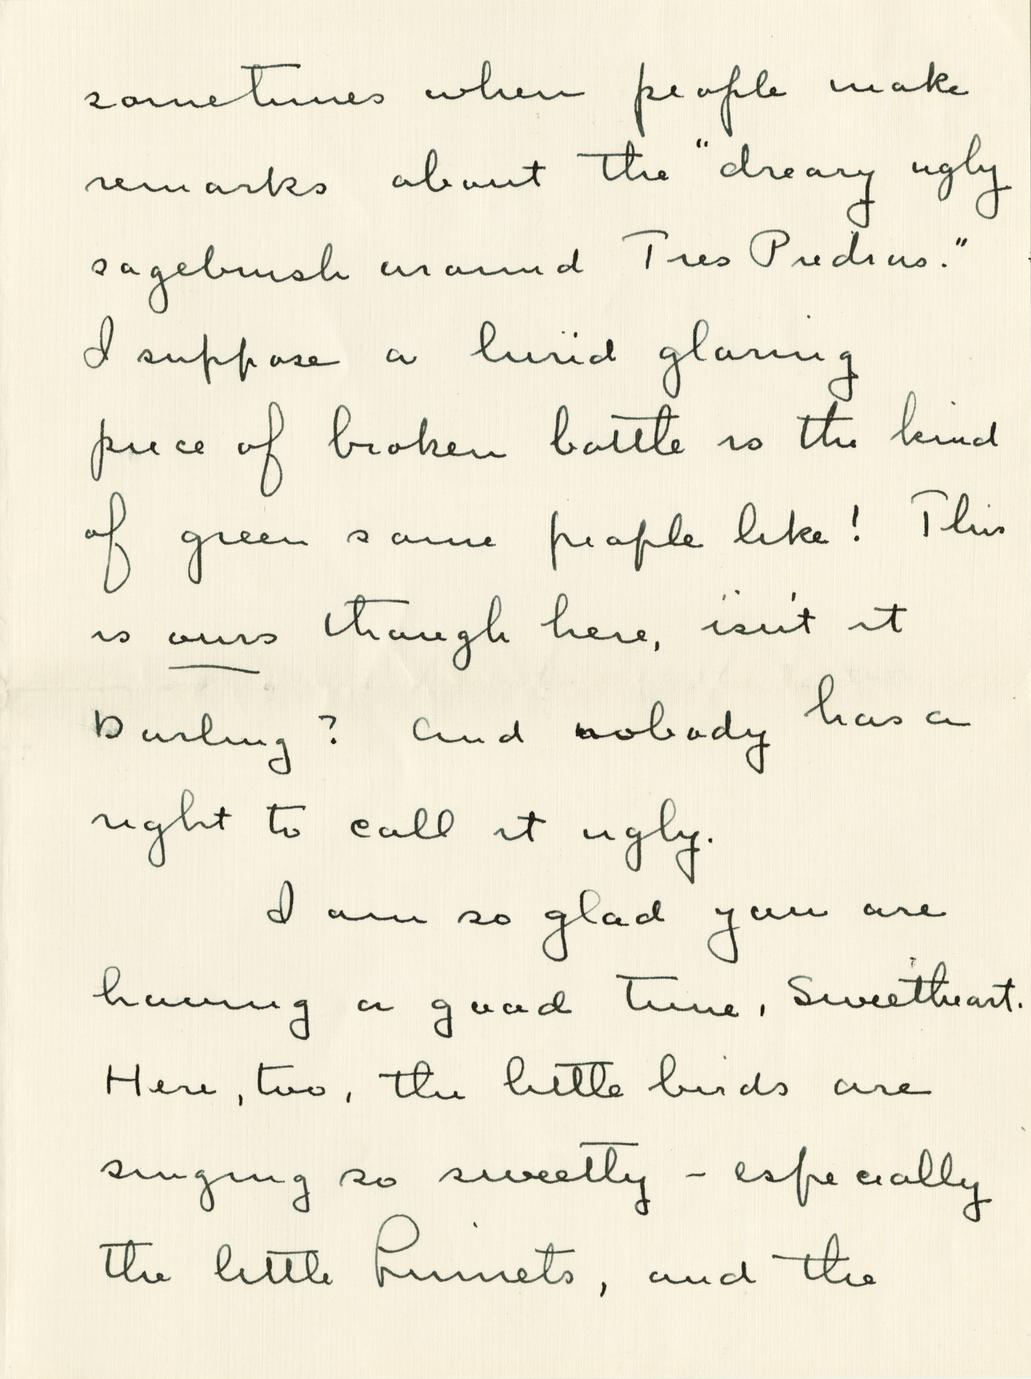 sometimes when people make
remarks about the "dreary ugly
sagebrush around Tres Piedras."
I suppose a lurid glaring
piece of broken bottle is the kind
of green some people like! This
is ours though here, isn't it
Darling? And nobody has a
right to call it ugly.
I am so glad you are
having a good time, Sweetheart.
Here, too, the little birds are
singing so sweetly - especially
the little Linnets, and the